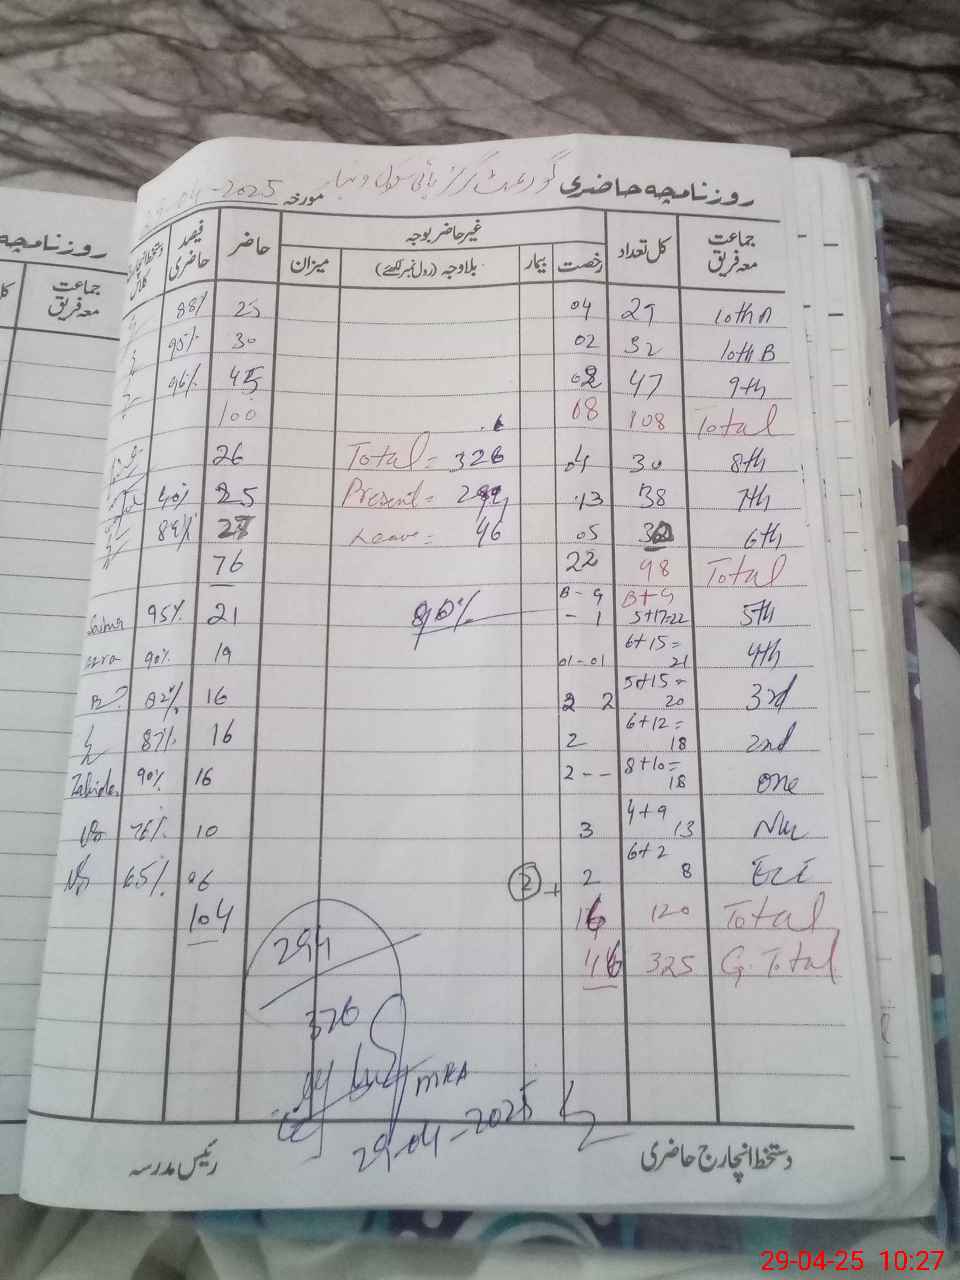 روزنامچہ حاضری گورنمنٹ گرلز ہائی سکول
مورخہ 29-04-2025
جماعت معہ فریق کل تعداد غیر حاضر بوجہ حاضر فیصد حاضری دستخط انچارج کلاس
رخصت بیمار بلاوجہ (رول نمبر لکھیئے) میزان
10th A 29 04 25 88%
10th B 32 02 30 95%
9th 47 02 45 96%
Total 108 08 100
8th 30 04 Total = 326 26
7th 38 13 Present = 25 40%
6th 30 05 Leave = 46 89%
Total 98 22 76
B+G B - G
5th 5+17=22 - 1 90% 21 95% Saima
4th 6+15= 21 01-01 19 90%
3rd 5+15= 20 2 2 16 82%
2nd 6+12= 18 2 16 87%
One 8+10= 18 2 -- 16 90% Zahida
4+9 13 3 10 76%
ECE 6+2 8 2 + 2 06 65%
Total 120 16 104
G. Total 325 46
294
326
29-04-2025
دستخط انچارج حاضری رئیس مدرسہ
روزنامچہ
جماعت معہ فریق
29-04-25 10:27